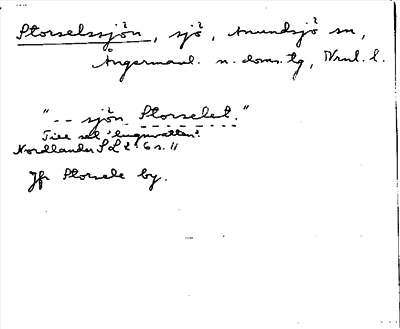 Storselssjön, sjö, Anundsjö sn,
Ångermanl. n. doms. tg, Vrnl. l.
"-- sjön Storselet."
Till sel 'lugnvatten'.
Nordlander SL 2:6 s. 11
Jfr Storsele by.